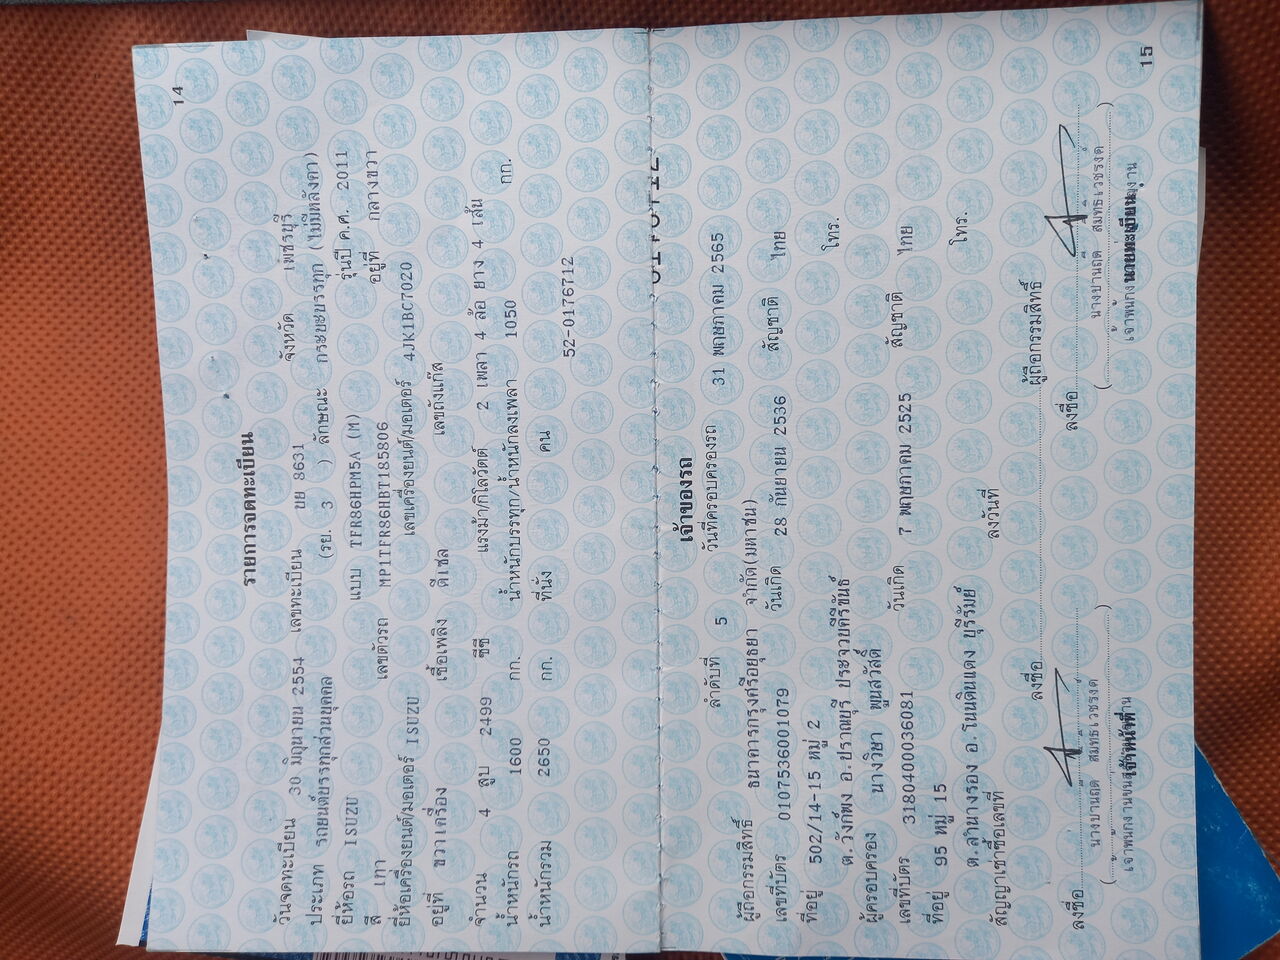 14
รายการจดทะเบียน
วันจดทะเบียน 30 มิถุนายน 2554 เลขทะเบียน บย 8631 จังหวัด เพชรบุรี
ประเภท รถยนต์บรรทุกส่วนบุคคล (รย. 3 ) ลักษณะ กระบะบรรทุก (ไม่มีหลังคา)
ยี่ห้อรถ ISUZU แบบ TFR86HPM5A (M) รุ่นปี ค.ศ. 2011
สี เทา เลขตัวรถ MP1TFR86HBT185806 อยู่ที่ กลางขวา
ยี่ห้อเครื่องยนต์/มอเตอร์ ISUZU เลขเครื่องยนต์/มอเตอร์ 4JK1BC7020
อยู่ที่ ขวาเครื่อง เชื้อเพลิง ดีเซล เลขถังแก๊ส
จำนวน 4 สูบ 2499 ซีซี แรงม้า/กิโลวัตต์ 2 เพลา 4 ล้อ ยาง 4 เส้น
น้ำหนักรถ 1600 กก. น้ำหนักบรรทุก/น้ำหนักลงเพลา 1050 กก.
น้ำหนักรวม 2650 กก. ที่นั่ง คน
52-0176712
เจ้าของรถ
ลำดับที่ 5 วันที่ครอบครองรถ 31 พฤษภาคม 2565
ผู้ถือกรรมสิทธิ์ ธนาคารกรุงศรีอยุธยา จำกัด(มหาชน)
เลขที่บัตร 0107536001079 วันเกิด 28 กันยายน 2536 สัญชาติ ไทย
ที่อยู่ 502/14-15 หมู่ 2 โทร.
ต.วังก์พง อ.ปราณบุรี ประจวบคีรีขันธ์
ผู้ครอบครอง นางวิษา พูนสวัสดิ์
เลขที่บัตร 3180400036081 วันเกิด 7 พฤษภาคม 2525 สัญชาติ ไทย
ที่อยู่ 95 หมู่ 15 โทร.
ต.ลำนางรอง อ.โนนดินแดง บุรีรัมย์
สัญญาเช่าซื้อเลขที่ ลงวันที่
ลงชื่อ ผู้ถือกรรมสิทธิ์
ลงชื่อ ลงชื่อ
นายทะเบียน
15